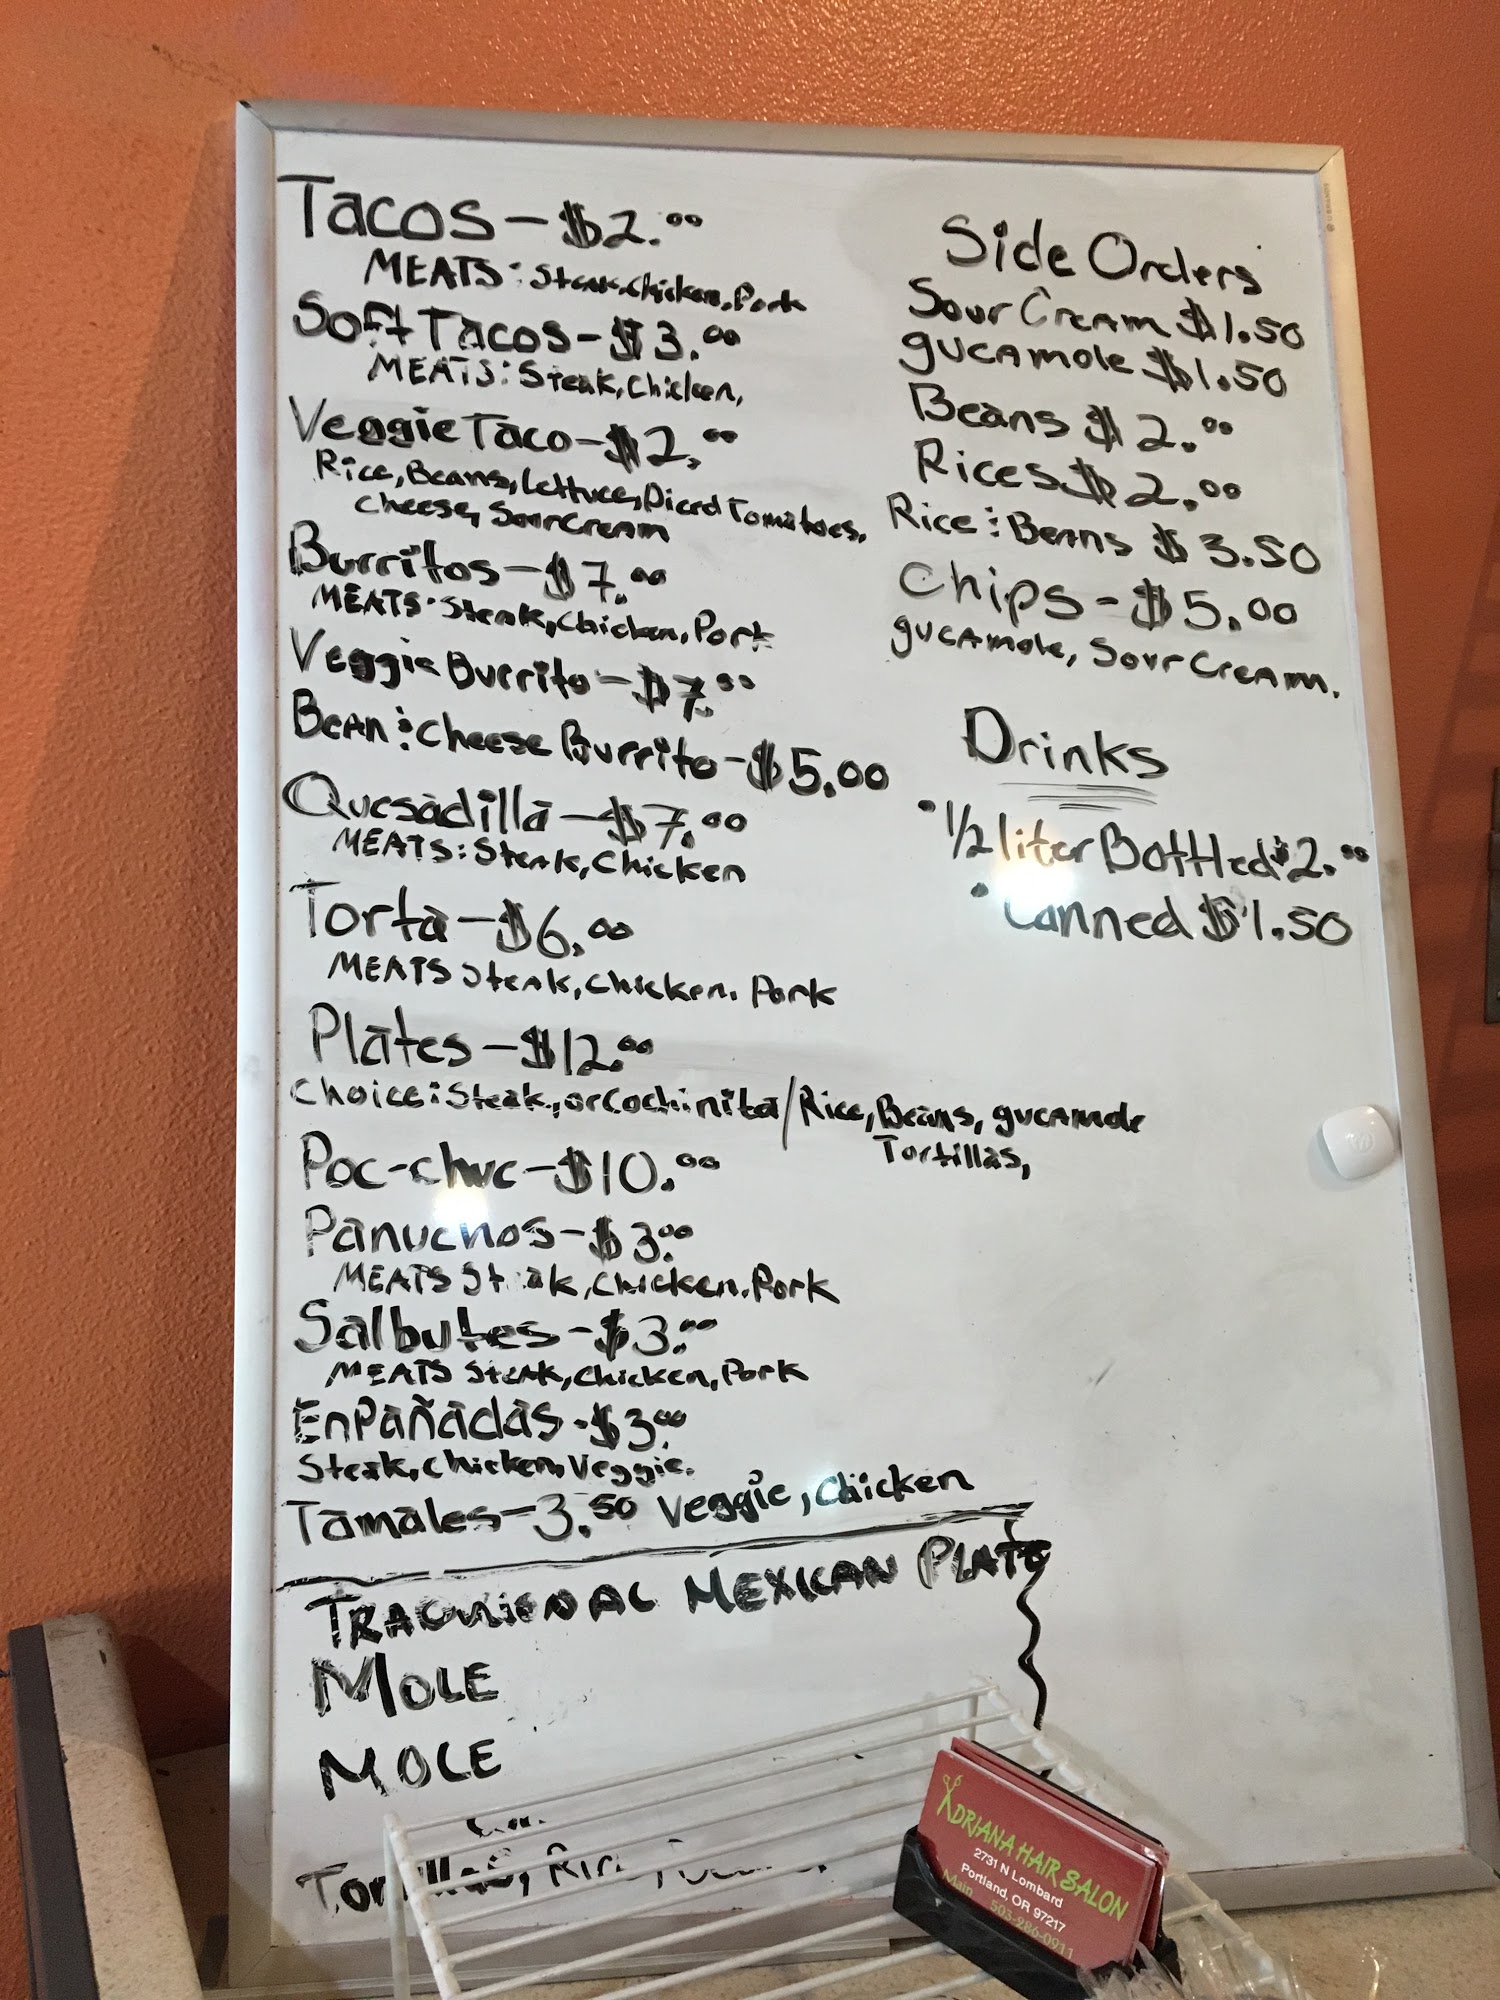 Tacos - $2.00
MEATS: Steak, Chicken, Pork
Soft Tacos - $3.00
MEATS: Steak, Chicken,
Veggie Taco - $2.00
Rice, Beans, Lettuce, Diced Tomatoes,
Cheese, Sour Cream
Burritos - $7.00
MEATS: Steak, Chicken, Pork
Veggie Burrito - $7.00
Bean & Cheese Burrito - $5.00
Quesadilla - $7.00
MEATS: Steak, Chicken
Torta - $6.00
MEATS Steak, Chicken. Pork
Plates - $12.00
Choice: Steak, or Cochinita / Rice, Beans, gucamole
Tortillas,
Poc-chuc - $10.00
Panuchos - $3.00
MEATS Steak, Chicken. Pork
Salbutes - $3.00
MEATS Steak, Chicken, Pork
EnPañadas - $3.00
Steak, Chicken, Veggie.
Tamales - 3.50 Veggie, Chicken
TRADITIONAL MEXICAN PLATE
MOLE
MOLE
Tortillas,
Side Orders
Sour Cream $1.50
gucamole $1.50
Beans $2.00
Rices $2.00
Rice & Beans $3.50
Chips - $5.00
gucamole, Sour Cream.
Drinks
• 1/2 liter Bottled $2.00
• Canned $1.50
ADRIANA HAIR SALON
2731 N Lombard
Portland, OR 97217
Main 503-286-0911